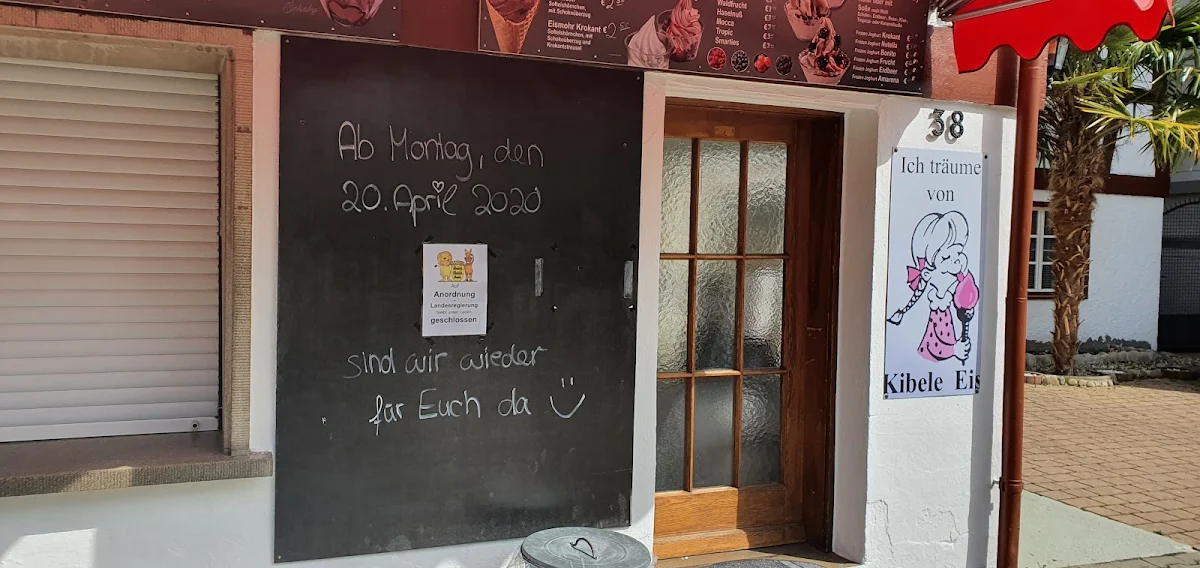 Softeishörnchen, mit
Schokoüberzug
Eismohr Krokant €
Softeishörnchen, mit
Schokoüberzug und
Krokantstreusel
Waldfrucht
Haselnuß
Mocca
Tropic
Smarties
Frozen Joghurt Krokant
Frozen Joghurt Nutella
Frozen Joghurt Bonito
Frozen Joghurt Frucht
Frozen Joghurt Erdbeer
Frozen Joghurt Amarena
38
Ab Montag, den
20. April 2020
Auf
Anordnung
Landesregierung
geschlossen
sind wir wieder
für Euch da
Ich träume
von
Kibele Eis